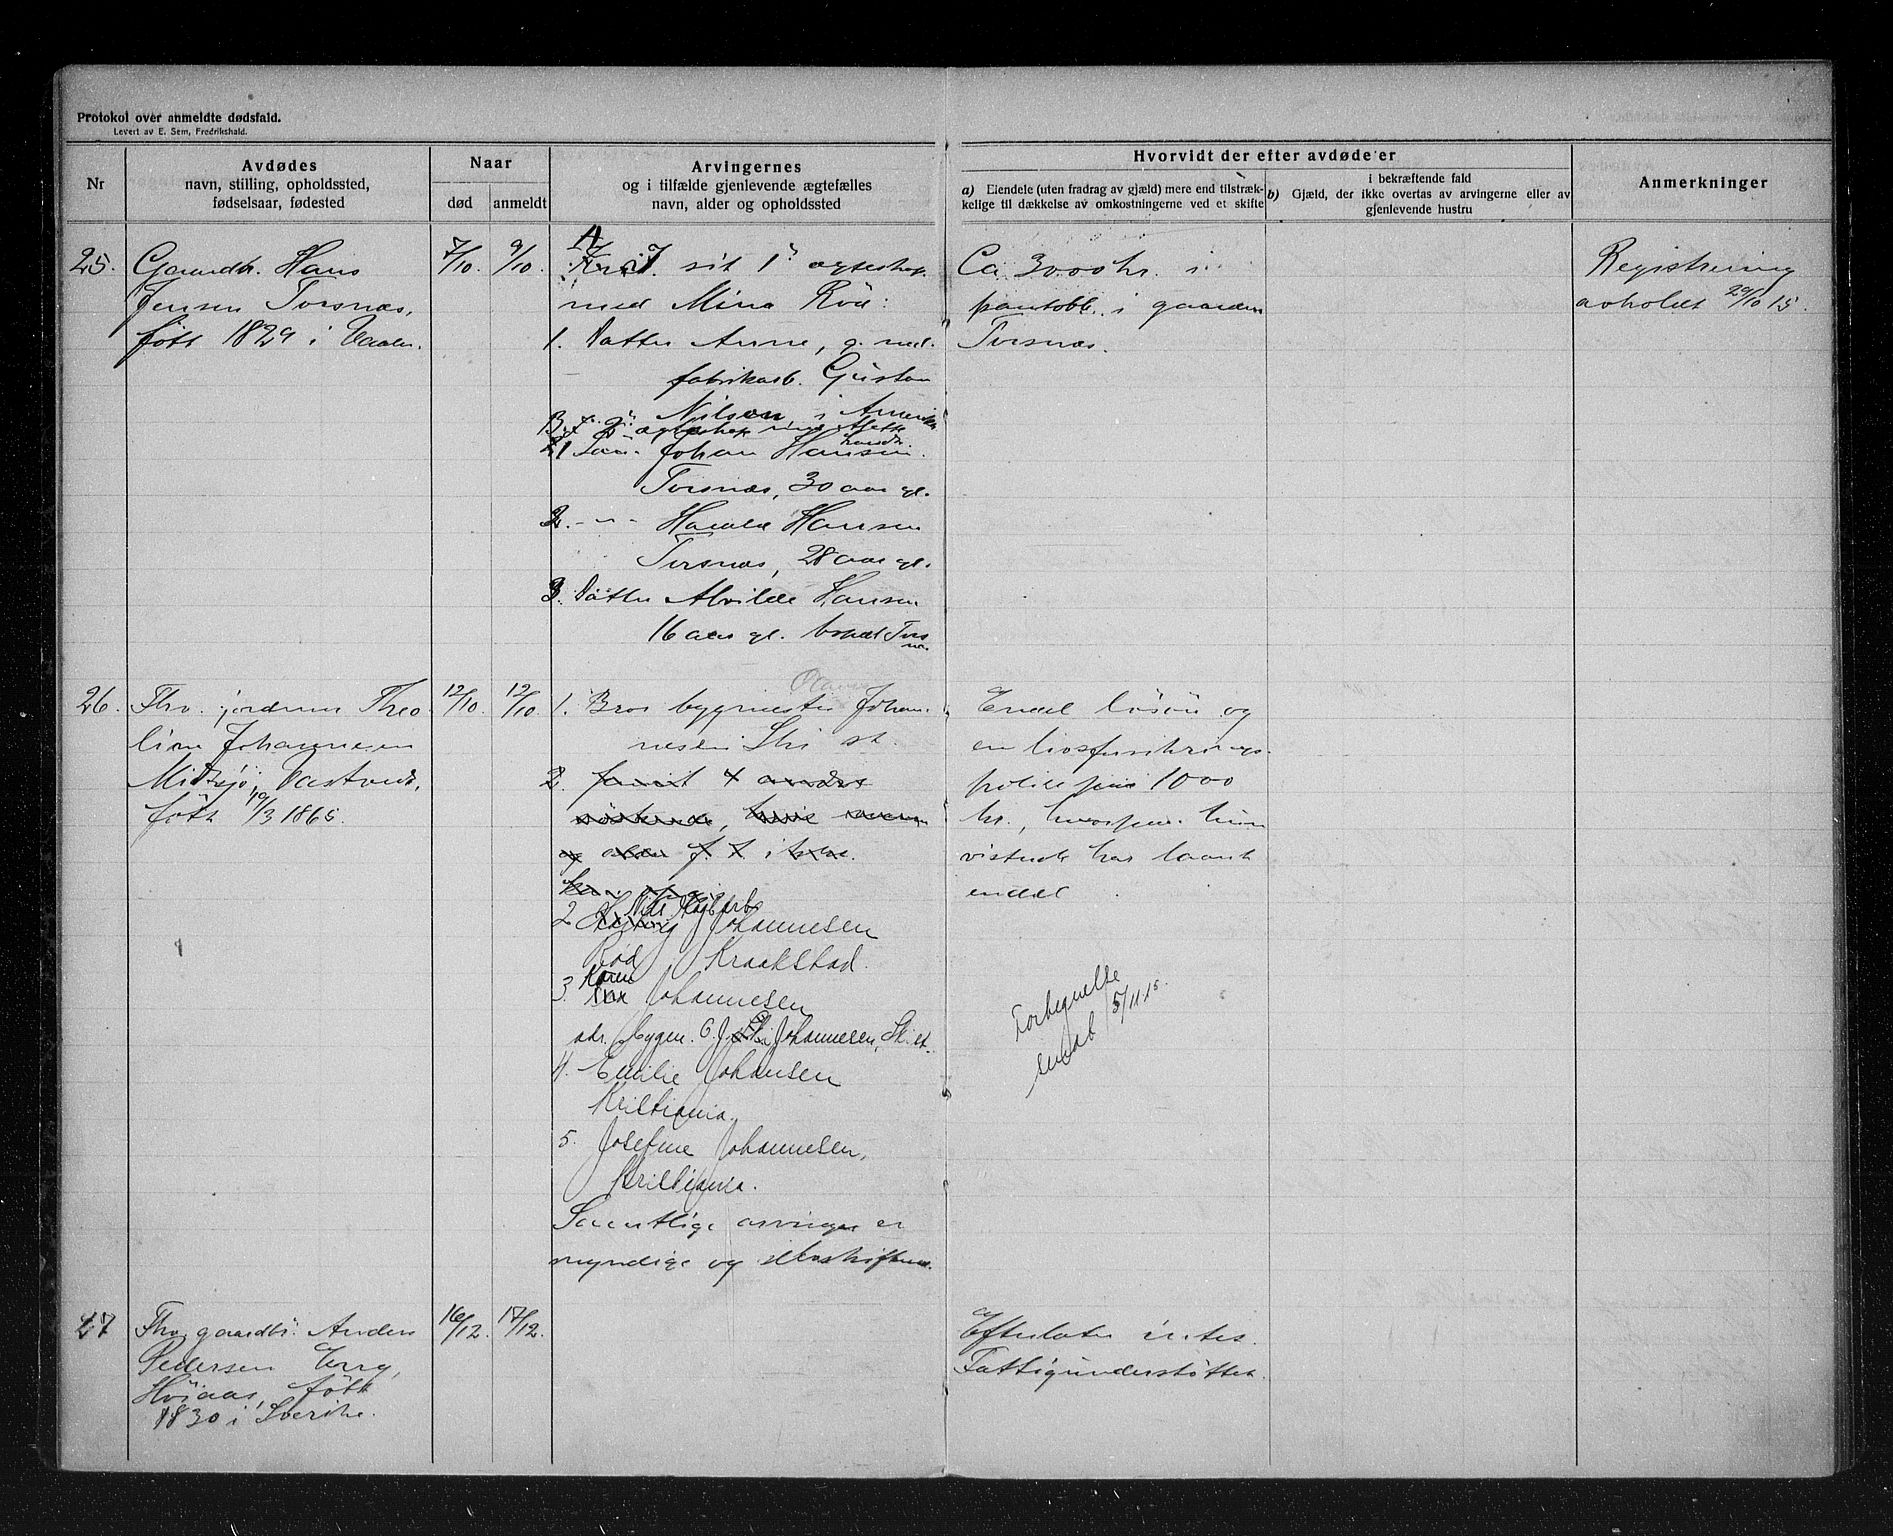 Protokol over anmeldte dødsfald.
Levert av E. Sem, Fredrikshald.
Nr
Avdødes
navn, stilling, opholdssted,
fødselsaar, fødested
Naar
død
anmeldt
Arvingernes
og i tilfælde gjenlevende ægtefælles
navn, alder og opholdssted
Hvorvidt der efter avdøde er
a) Eiendele (uten fradrag av gjæld) mere end tilstræk-
kelige til dækkelse av omkostningerne ved et skifte
i bekræftende fald
b) Gjæld, der ikke overtas av arvingerne eller av
gjenlevende hustru
Anmerkninger
25.
Gaardbr. Hans
Jensen Torsnæs,
født 1829 i Vaaler.
7/10.
9/10.
A
I sit 1ste ægteskap
med Mina Röd:
1. Datter Anne, g. med
fabrikarb. Gustav
Nilsen i Amerika
B. I 2" ægteskap med
1 Søn - Johan Hansen
Torsnæs, 30 aar gl.
2. -"- Harald Hansen
Torsnæs, 28 aar gl.
3. Datter Alvilde Hansen
16 aar gl. bopæl Tors
næs
Ca 3000 kr. i
pantobl. i gaarden
Torsnæs.
Registrering
avholdt 29/10 15.
26.
Fhv. jordmor Theo
line Johannesen
Midtsjö, Vastvedt,
født 19/3 1865.
12/10.
12/10.
1. Bror bygmester Johan-
nesen Ski st.
2. samt 4 andre
söskende, hvis navn
og alder f. t. ikke
2 Nils Hagbart Johannesen
Rød i Kraakstad.
3. Karen Johannesen
adr. bygm. O. J. Johannesen, Ski st.
4. Emilie Johansen
Kristiania.
5. Josefine Johannesen,
Kristiania.
Samtlige arvinger er
myndige og selvskiftende.
Endel lösöre og
en livsforsikrings-
police paa 1000
kr., hvorpaa hun
vistnok har laant
endel
Forbegnelse
sendt 5/11 15.
27
Fhv. gaardbr. Anders
Pedersen Eng,
Höiaas, født
1830 i Sverike.
16/12.
17/12.
Efterlater intet.
Fattigunderstöttet.